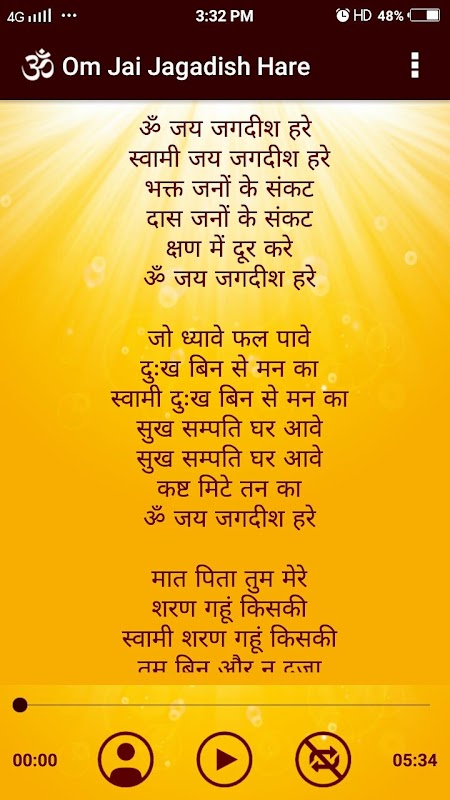 4G 3:32 PM HD 48%
ॐ Om Jai Jagadish Hare
ॐ जय जगदीश हरे
स्वामी जय जगदीश हरे
भक्त जनों के संकट
दास जनों के संकट
क्षण में दूर करे
ॐ जय जगदीश हरे
जो ध्यावे फल पावे
दुःख बिन से मन का
स्वामी दुःख बिन से मन का
सुख सम्पति घर आवे
सुख सम्पति घर आवे
कष्ट मिटे तन का
ॐ जय जगदीश हरे
मात पिता तुम मेरे
शरण गहूं किसकी
स्वामी शरण गहूं किसकी
तुम बिन और न दूजा
00:00 05:34